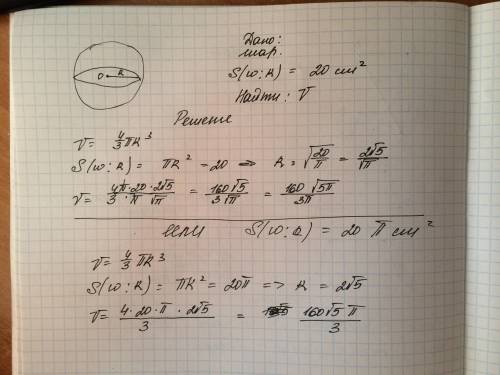 Дано:
шар.
O R
S(ω;R) = 20 cm²
Найти: V
Решение
V = 4/3 πR³
S(ω;R) = πR² = 20 => R = √(20/π) = 2√5/√π
V = (4π · 20 · 2√5)/(3 · π √π) = 160√5/(3√π) = 160√(5π)/(3π)
или S(ω;R) = 20 π cm²
V = 4/3 πR³
S(ω;R) = πR² = 20π => R = 2√5
V = (4 · 20 · π · 2√5)/3 = 160√5 π/3